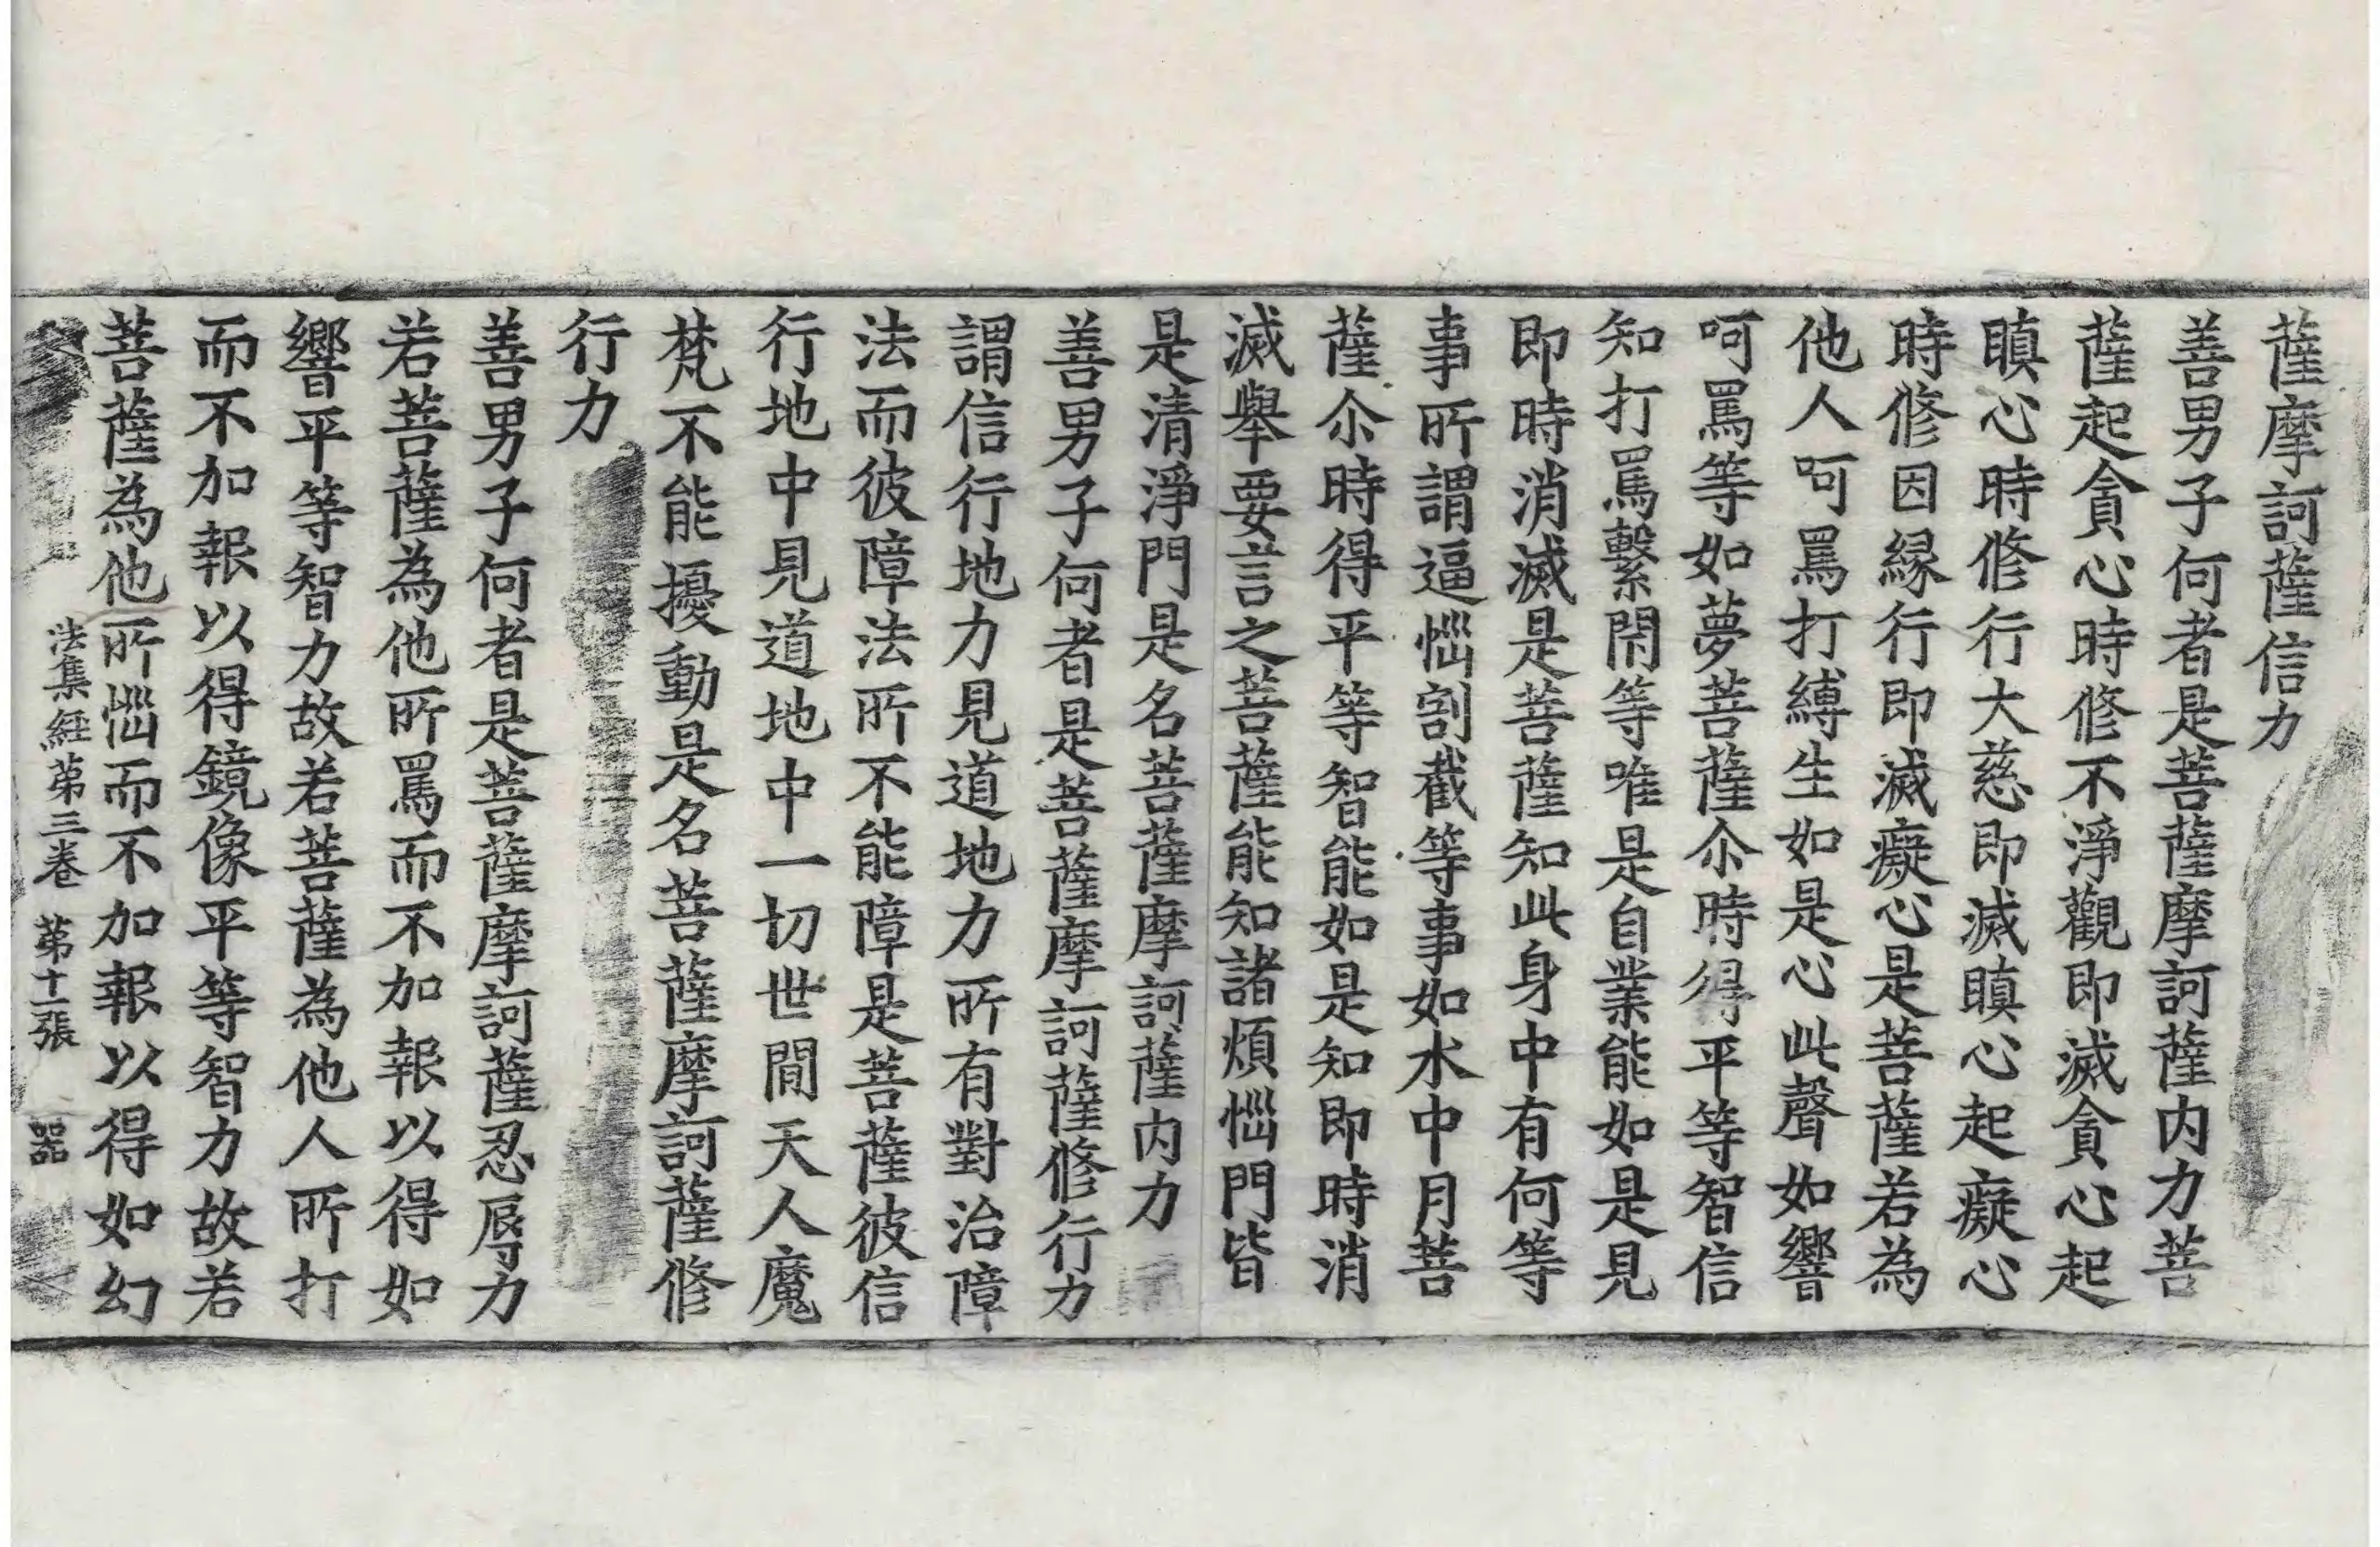 薩摩訶薩信力
善男子何者是菩薩摩訶薩内力菩
薩起貪心時修不淨觀即滅貪心起
瞋心時修行大慈即滅瞋心起癡心
時修因緣行即滅癡心是菩薩若為
他人呵罵打縛生如是心此聲如響
呵罵等如夢菩薩尒時得平等智信
知打罵繫閇等唯是自業能如是見
即時消滅是菩薩知此身中有何等
事所謂逼惱割截等事如水中月菩
薩尒時得平等智能如是知即時消
滅舉要言之菩薩能知諸煩惱門皆
是清淨門是名菩薩摩訶薩内力
善男子何者是菩薩摩訶薩修行力
謂信行地力見道地力所有對治障
法而彼障法所不能障是菩薩彼信
行地中見道地中一切世間天人魔
梵不能擾動是名菩薩摩訶薩修
行力
善男子何者是菩薩摩訶薩忍辱力
若菩薩為他所罵而不加報以得如
響平等智力故若菩薩為他人所打
而不加報以得鏡像平等智力故若
菩薩為他所惱而不加報以得如幻
法集經第三卷 第十一張 器